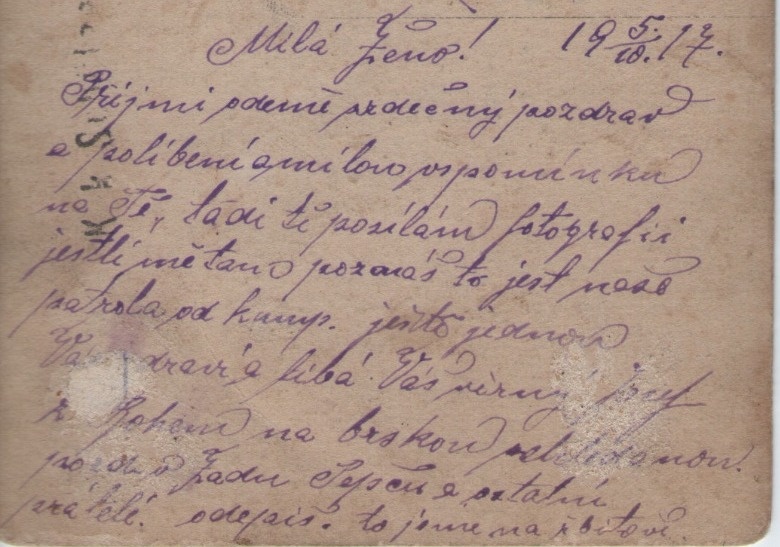 Milá Ženo! 19 5./10. 17.
Příjmi odemě srdečný pozdrav
a políbení a milou vspomínku
na Tě, tadi ti posílám fotografii
jestli mě tam poznáš to jest naše
patrola od kump. ještě jednou
Vás zdraví a líbá Váš věrný Josef
s Bohem na brskou
pozdrav Žadu a ostatní
přátelé. odepiš. to jsme na